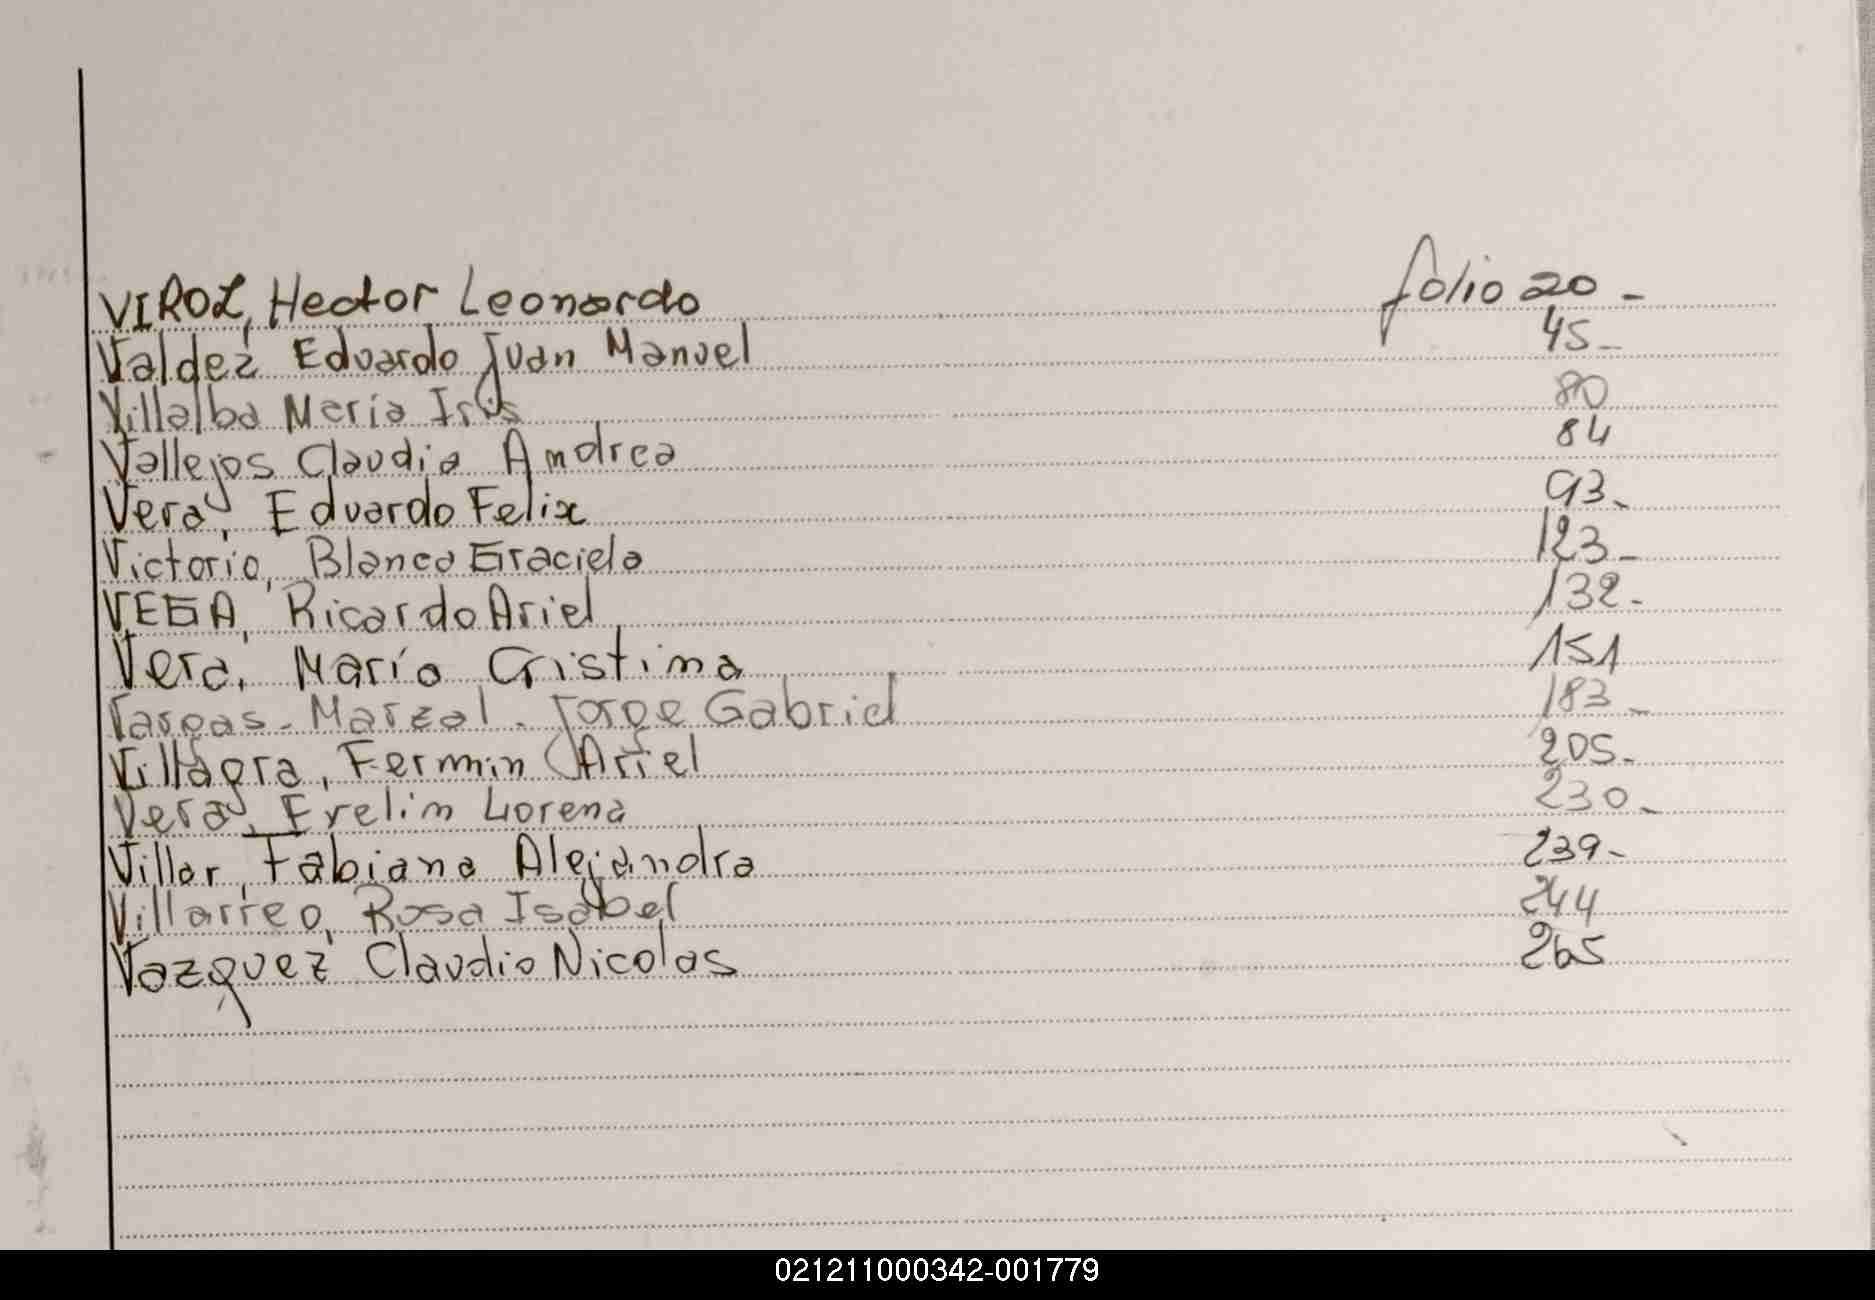 VIROL, Hector Leonardo folio 20 -
Valdez, Eduardo Juan Manuel 45 -
Villalba Maria Iris 80
Vallejos Claudia Andrea 84
Vera, Eduardo Felix 93 -
Victorio, Blanca Graciela 123 -
VEGA, Ricardo Ariel 132 -
Vera, María Cristina 151
Vargas - Marzal - Jorge Gabriel 183 -
Villagra, Fermin Ariel 205 -
Vera, Evelin Lorena 230 -
Villar, Fabiana Alejandra 239 -
Villarreo, Rosa Isabel 244
Vazquez, Claudio Nicolas 265
021211000342-001779